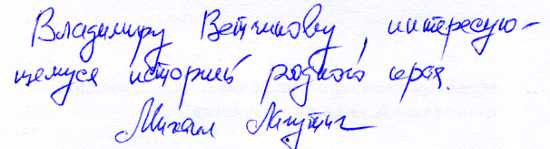 Владимиру Ветчинову, интересую-
щемуся историей родного края.
Михаил Лагутич